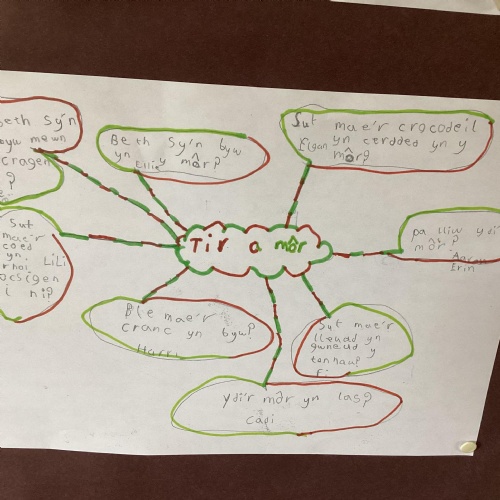 Beth sy'n
byw mewn
cragen
?
Beth sy'n byw
yn y môr?
Lilly
Sut mae'r crocodeil
yn cerdded yn y
môr?
Elgan
Tir a môr
pa lliw ydi
môr?
Aaron
Erin
Sut
mae'r
coed
yn
rhoi
ocsigen
i ni?
LiLi
Ble mae'r
cranc yn byw?
Harri
Sut mae'r
lleuad yn
gwneud y
tonnau?
Ydi'r môr yn las?
Cadi